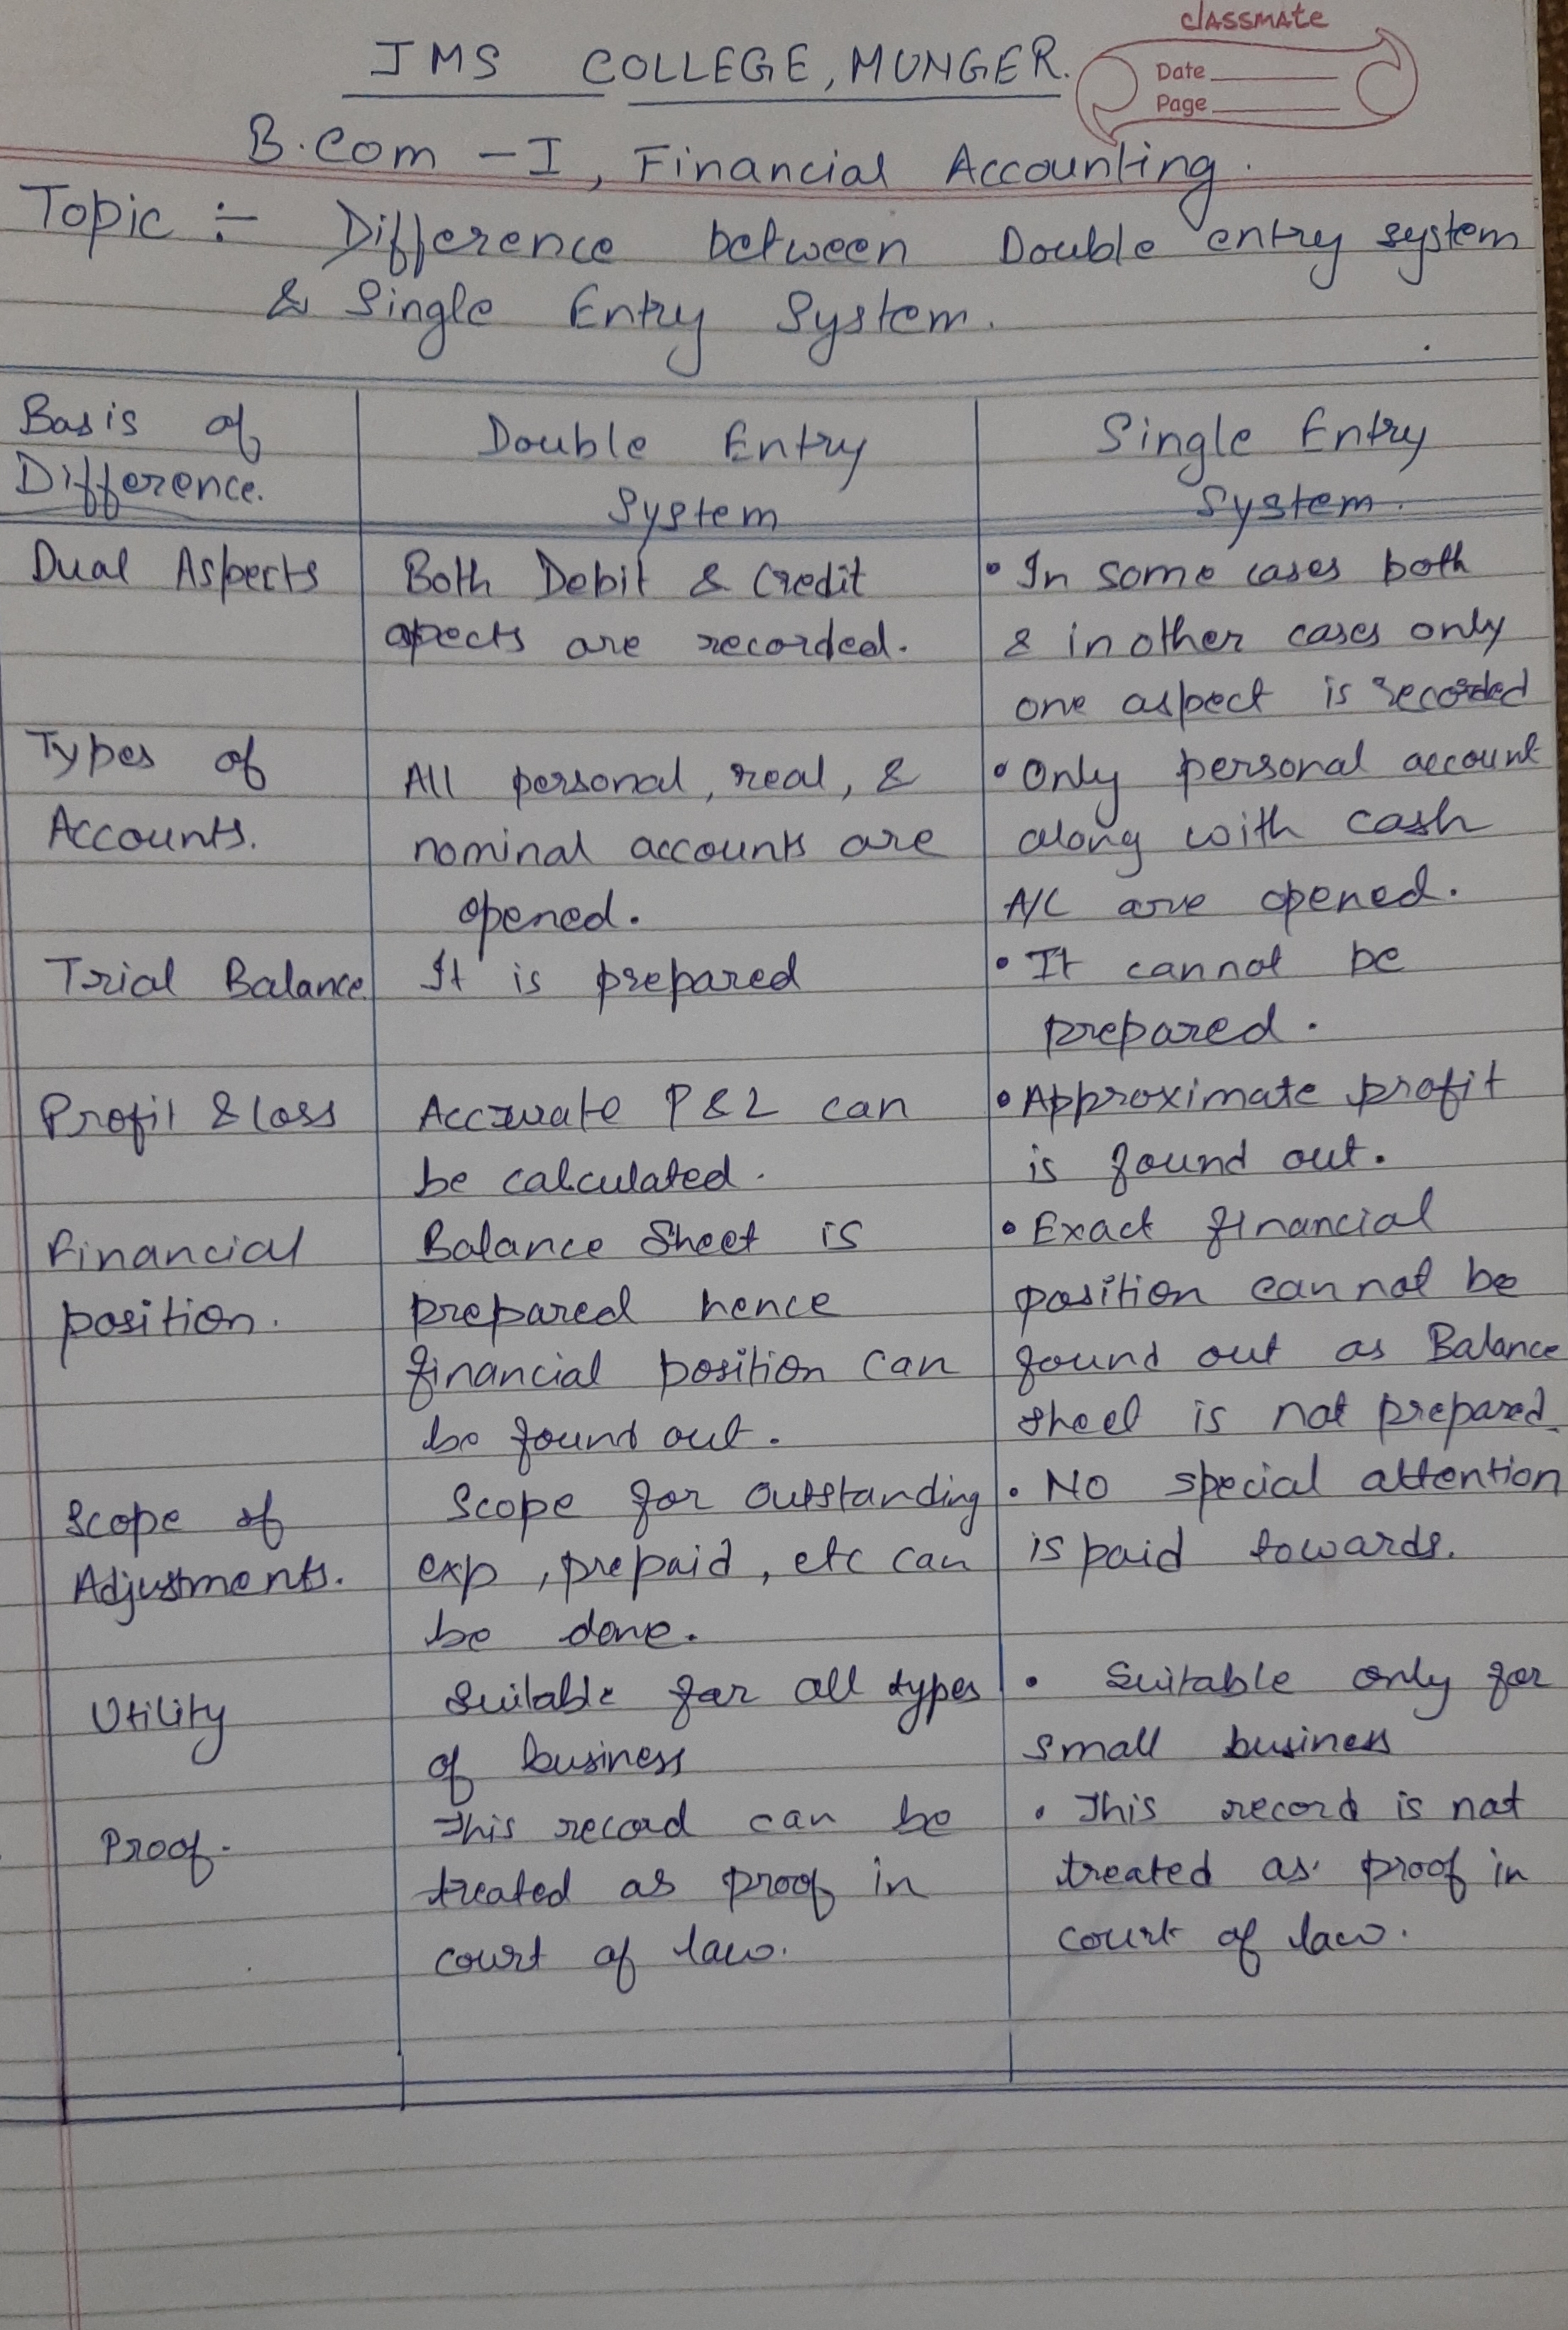 classmate
Date
Page
JMS COLLEGE, MUNGER.
B.Com - I, Financial Accounting.
Topic :- Difference between Double entry system
& Single Entry System.
Basis of
Difference.
Double Entry
System
Single Entry
System.
Dual Aspects
Both Debit & Credit
apects are recorded.
• In some cases both
& in other cases only
one aspect is recorded
Types of
Accounts.
All personal, real, &
nominal accounts are
opened.
• Only personal account
along with cash
A/C are opened.
Trial Balance.
It is prepared
• It cannot be
prepared.
Profit & loss
Accurate P & L can
be calculated.
• Approximate profit
is found out.
Financial
position.
Balance Sheet is
prepared hence
financial position can
be found out.
• Exact financial
position cannot be
found out as Balance
sheet is not prepared.
Scope of
Adjustments.
Scope for outstanding
exp, prepaid, etc can
be done.
• No special attention
is paid towards.
Utility
Suitable for all types
of business
• Suitable only for
small business
Proof.
This record can be
treated as proof in
court of law.
• This record is not
treated as proof in
court of law.